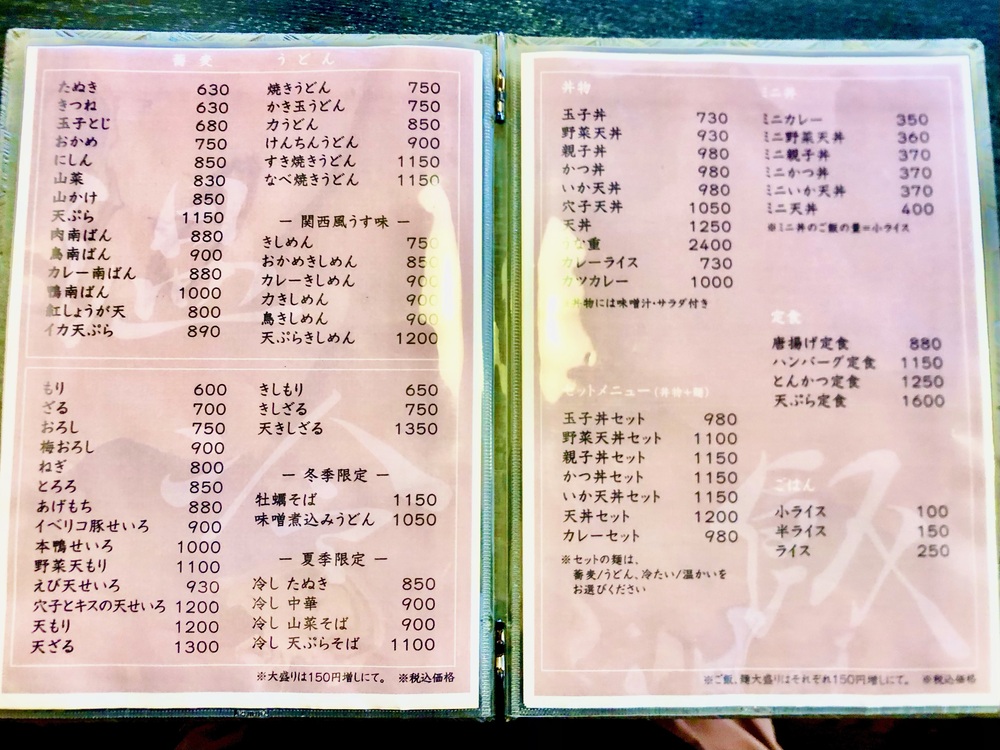 蕎麦 うどん
たぬき 630
きつね 630
玉子とじ 680
おかめ 750
にしん 850
山菜 830
山かけ 850
天ぷら 1150
肉南ばん 880
鳥南ばん 900
カレー南ばん 880
鴨南ばん 1000
紅しょうが天 800
イカ天ぷら 890
焼きうどん 750
かき玉うどん 750
力うどん 850
けんちんうどん 900
すき焼きうどん 1150
なべ焼きうどん 1150
― 関西風うす味 ―
きしめん 750
おかめきしめん 850
カレーきしめん 900
力きしめん 900
鳥きしめん 900
天ぷらきしめん 1200
冷
もり 600
ざる 700
おろし 750
梅おろし 900
ねぎ 800
とろろ 850
あげもち 880
イベリコ豚せいろ 900
本鴨せいろ 1000
野菜天もり 1100
えび天せいろ 930
穴子とキスの天せいろ 1200
天もり 1200
天ざる 1300
きしもり 650
きしざる 750
天きしざる 1350
― 冬季限定 ―
牡蠣そば 1150
味噌煮込みうどん 1050
― 夏季限定 ―
冷し たぬき 850
冷し 中華 900
冷し 山菜そば 900
冷し 天ぷらそば 1100
※大盛りは150円増しにて。 ※税込価格
丼物
玉子丼 730
野菜天丼 930
親子丼 980
かつ丼 980
いか天丼 980
穴子天丼 1050
天丼 1250
うな重 2400
カレーライス 730
カツカレー 1000
※丼物には味噌汁・サラダ付き
セットメニュー(丼物+麺)
玉子丼セット 980
野菜天丼セット 1100
親子丼セット 1150
かつ丼セット 1150
いか天丼セット 1150
天丼セット 1200
カレーセット 980
※セットの麺は、
蕎麦/うどん、冷たい/温かいを
お選びください
ミニ丼
ミニカレー 350
ミニ野菜天丼 360
ミニ親子丼 370
ミニかつ丼 370
ミニいか天丼 370
ミニ天丼 400
※ミニ丼のご飯の量=小ライス
定食
唐揚げ定食 880
ハンバーグ定食 1150
とんかつ定食 1250
天ぷら定食 1600
ごはん
小ライス 100
半ライス 150
ライス 250
※ご飯、麺大盛りはそれぞれ150円増しにて。 ※税込価格